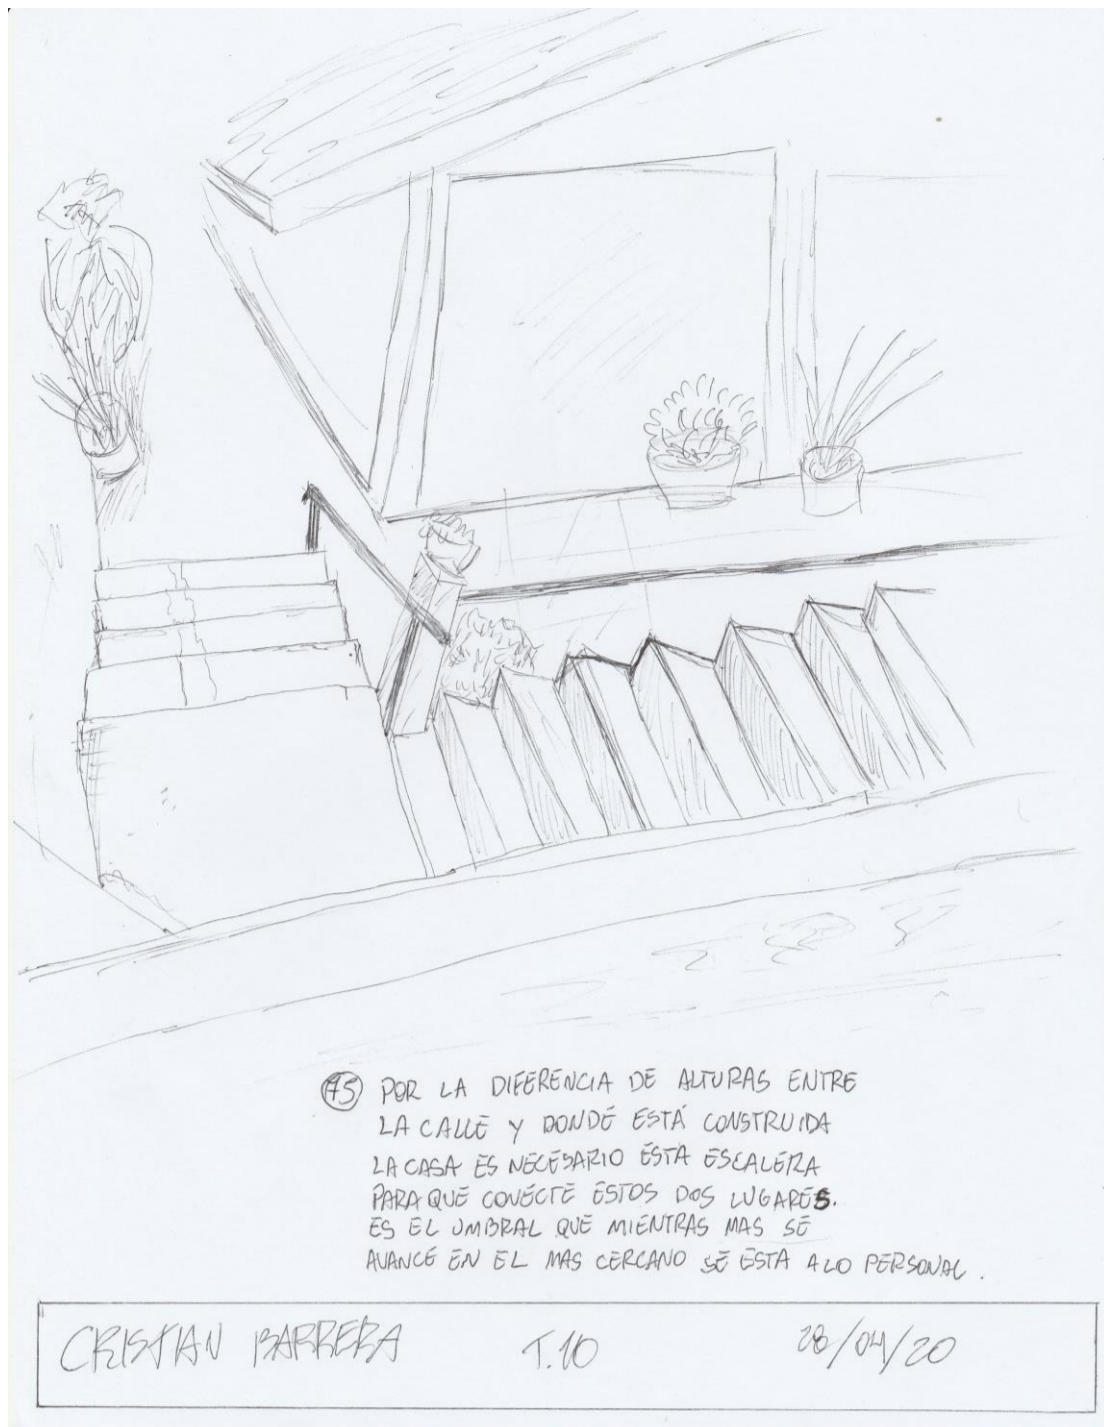 45 POR LA DIFERENCIA DE ALTURAS ENTRE
LA CALLE Y DONDE ESTÁ CONSTRUIDA
LA CASA ES NECESARIO ESTA ESCALERA
PARA QUE CONECTE ESTOS DOS LUGARES.
ES EL UMBRAL QUE MIENTRAS MAS SE
AVANCE EN EL MAS CERCANO SE ESTA A LO PERSONAL.
CRISTIAN BARRERA T.10 28/04/20